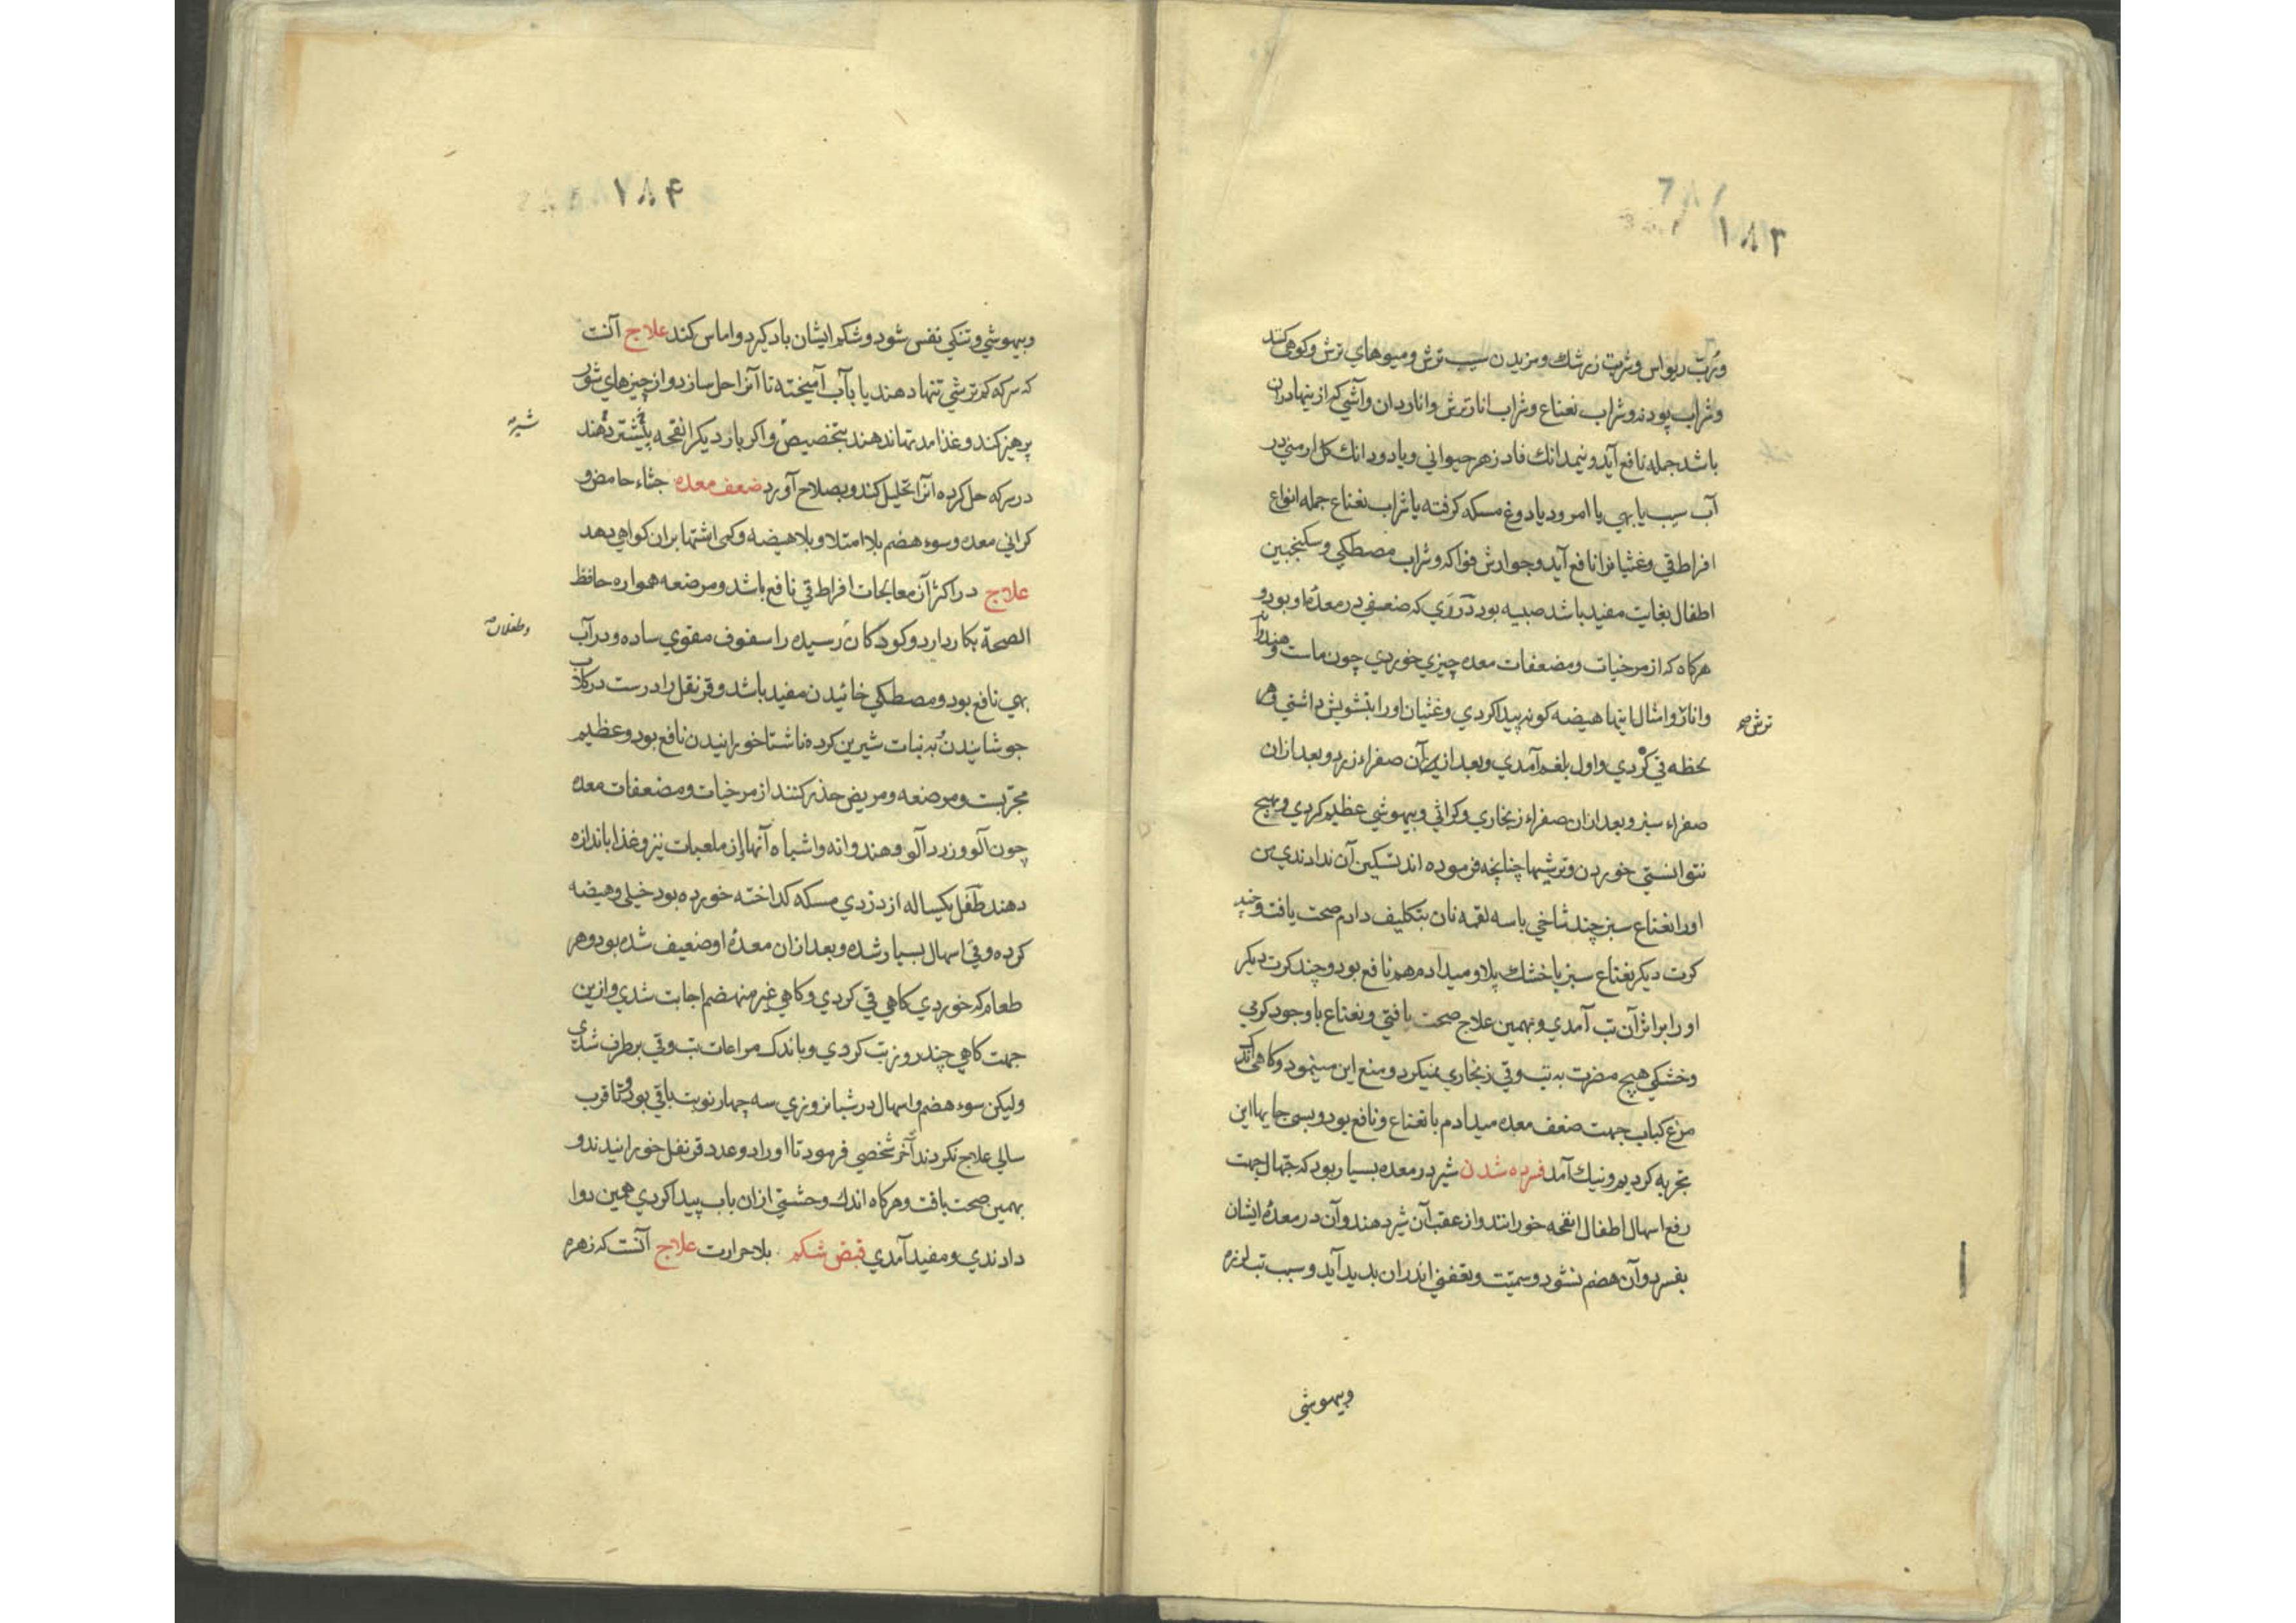 ۱۸۳
ورُبّ ریواس وشربت زرشك ومزیدن سیب ترش ومیوهاي ترش وکوهی کند
وشراب پودنه وشراب نعناع وشراب انار ترش وانار دان وآشي که از ینها دران
باشد جمله نافع آید ونیمدانك فاد زهر حیواني ویا دو دانك کل ارمني در
آب سیب یا بهي یا امرود یا دوغ مسکه کرفته یا شراب نعناع جمله انواع
افراط قي وغثیانرا نافع آید وجوارش فواکه وشراب مصطکي وسکنجبین
اطفال بغایت مفید باشد صبیه بود که ضعفي در معدهٔ او بود و
هرکاه که از مرخیات ومضعفات معده چیزي خوردي چون ماست وهندوانه
وانار وامثال اینها هیضه کونه پیدا کردي وغثیان اورا بتشویش داشتي وهر
ترش صح
لحظه قي کردي واول بلغم آمدي وبعد ازان صفراء زرد وبعد ازان
صفراء سبز وبعد ازان صفراء زنجاري وکراثي وبیهوشي عظیم کردي وهیچ
نتوانستي خوردن وترشیها چنانچه فرموده اند تسکین آن ندادندي من
اورا نعناع سبز چند شاخي با سه لقمه نان بتکلیف دادم صحت یافت وچند
کرت دیکر نعناع سبز یا خشك پلاو میدادم هم نافع بود وچند کرت دیکر
اورا بر اثر آن تب آمدي وبهمین علاج صحت یافتي ونعناع باوجود کرمي
وخشکي هیچ مضرت به تب وقي زنجاري نمیکرد ومنع این مینمود وکاهي اندك
مرغ کباب جهت ضعف معده میدادم با نعناع ونافع بود وبسی جایها این
تجربه کردیم ونیك آمد فسرده شدن شیر در معده بسیار بود که جهال جهت
رفع اسهال اطفال انفحه خورانند واز عقب آن شیر دهند وآن در معدهٔ ایشان
بفسرد وآن هضم نشود وسمیّت وتعفني اندران بدید آید وسبب تب لرزه
وبیهوشي
۱۸۴
وبیهوشي وتنکي نفس شود وشکم ایشان باد کیرد واماس کند علاج آنت
که سرکه کم ترشي تنها دهند یا بآب آمیخته تا آنرا حل سازد واز چیزهاي شور
پرهیز کند وغذا مدتها ندهند بتخصیص واکر بار دیکر انفحه بیشتر دهند
شیر صح
در سرکه حل کرده آنرا تحلیل کند وبصلاح آورد ضعف معده جشاء حامض و
کراني معده وسوء هضم بلا امتلا وبلا هیضه وکمی اشتها بران کواهي دهد
علاج در اکثر آن معالجات افراط قي نافع باشد ومرضعه همواره حافظ
الصحة بکار دارد وکودکان رسیده را سفوف مقوي ساده ودر آب
وطفلان صح
بهي نافع بود ومصطکي خائیدن مفید باشد وقرنفل را درست در کلاب
جوشانیدن به نبات شیرین کرده ناشتا خورانیدن نافع بود وعظیم
مجرّبست ومرضعه ومریض حذر کنند از مرخیات ومضعفات معده
چون آلو وزرد آلو وهندوانه واشباه آنها از ملعبات نیز وغذا باندازه
دهند طفل یکساله از دزدي مسکه کداخته خورده بود خیلی وهیضه
کرده وقي اسهال بسیار شده وبعد ازان معدهٔ او ضعیف شده بود وهر
طعام که خوردي کاهي قي کردي وکاهي غیر منهضم اجابت شدي وازین
جهت کاهي چند روز تب کردي وباندک مراعات تب وقي برطرف شدي
ولیکن سوء هضم واسهال در شبانروزي سه چهار نوبت باقي بود وتا قرب
سالي علاج نکردند آخر شخصي فرمود تا اورا دو عدد قرنفل خورانیدند و
بهمین صحت یافت وهرکاه اندك وحشتي ازان باب پیدا کردي همین دوا
دادندي ومفید آمدي قبض شکم بلا حرارت علاج آنست که زهره